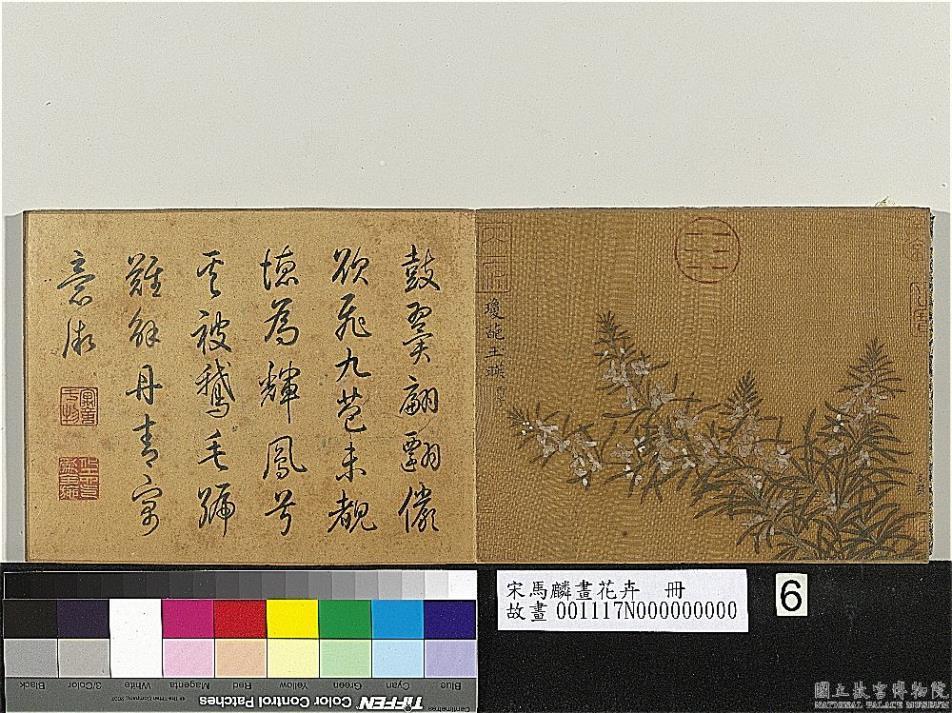 鼓翼翩翾儼
欲飛九苞未覩
德為輝鳳兮
被鵝毛號
難解丹青寓
意微
瓊葩玉
宋馬麟畫花卉 冊
故畫 001117N000000000
6
Blue Cyan Green Yellow Red Magenta White 3/Color Black
TIFFEN Color Control Patches
國立故宮博物院
NATIONAL PALACE MUSEUM